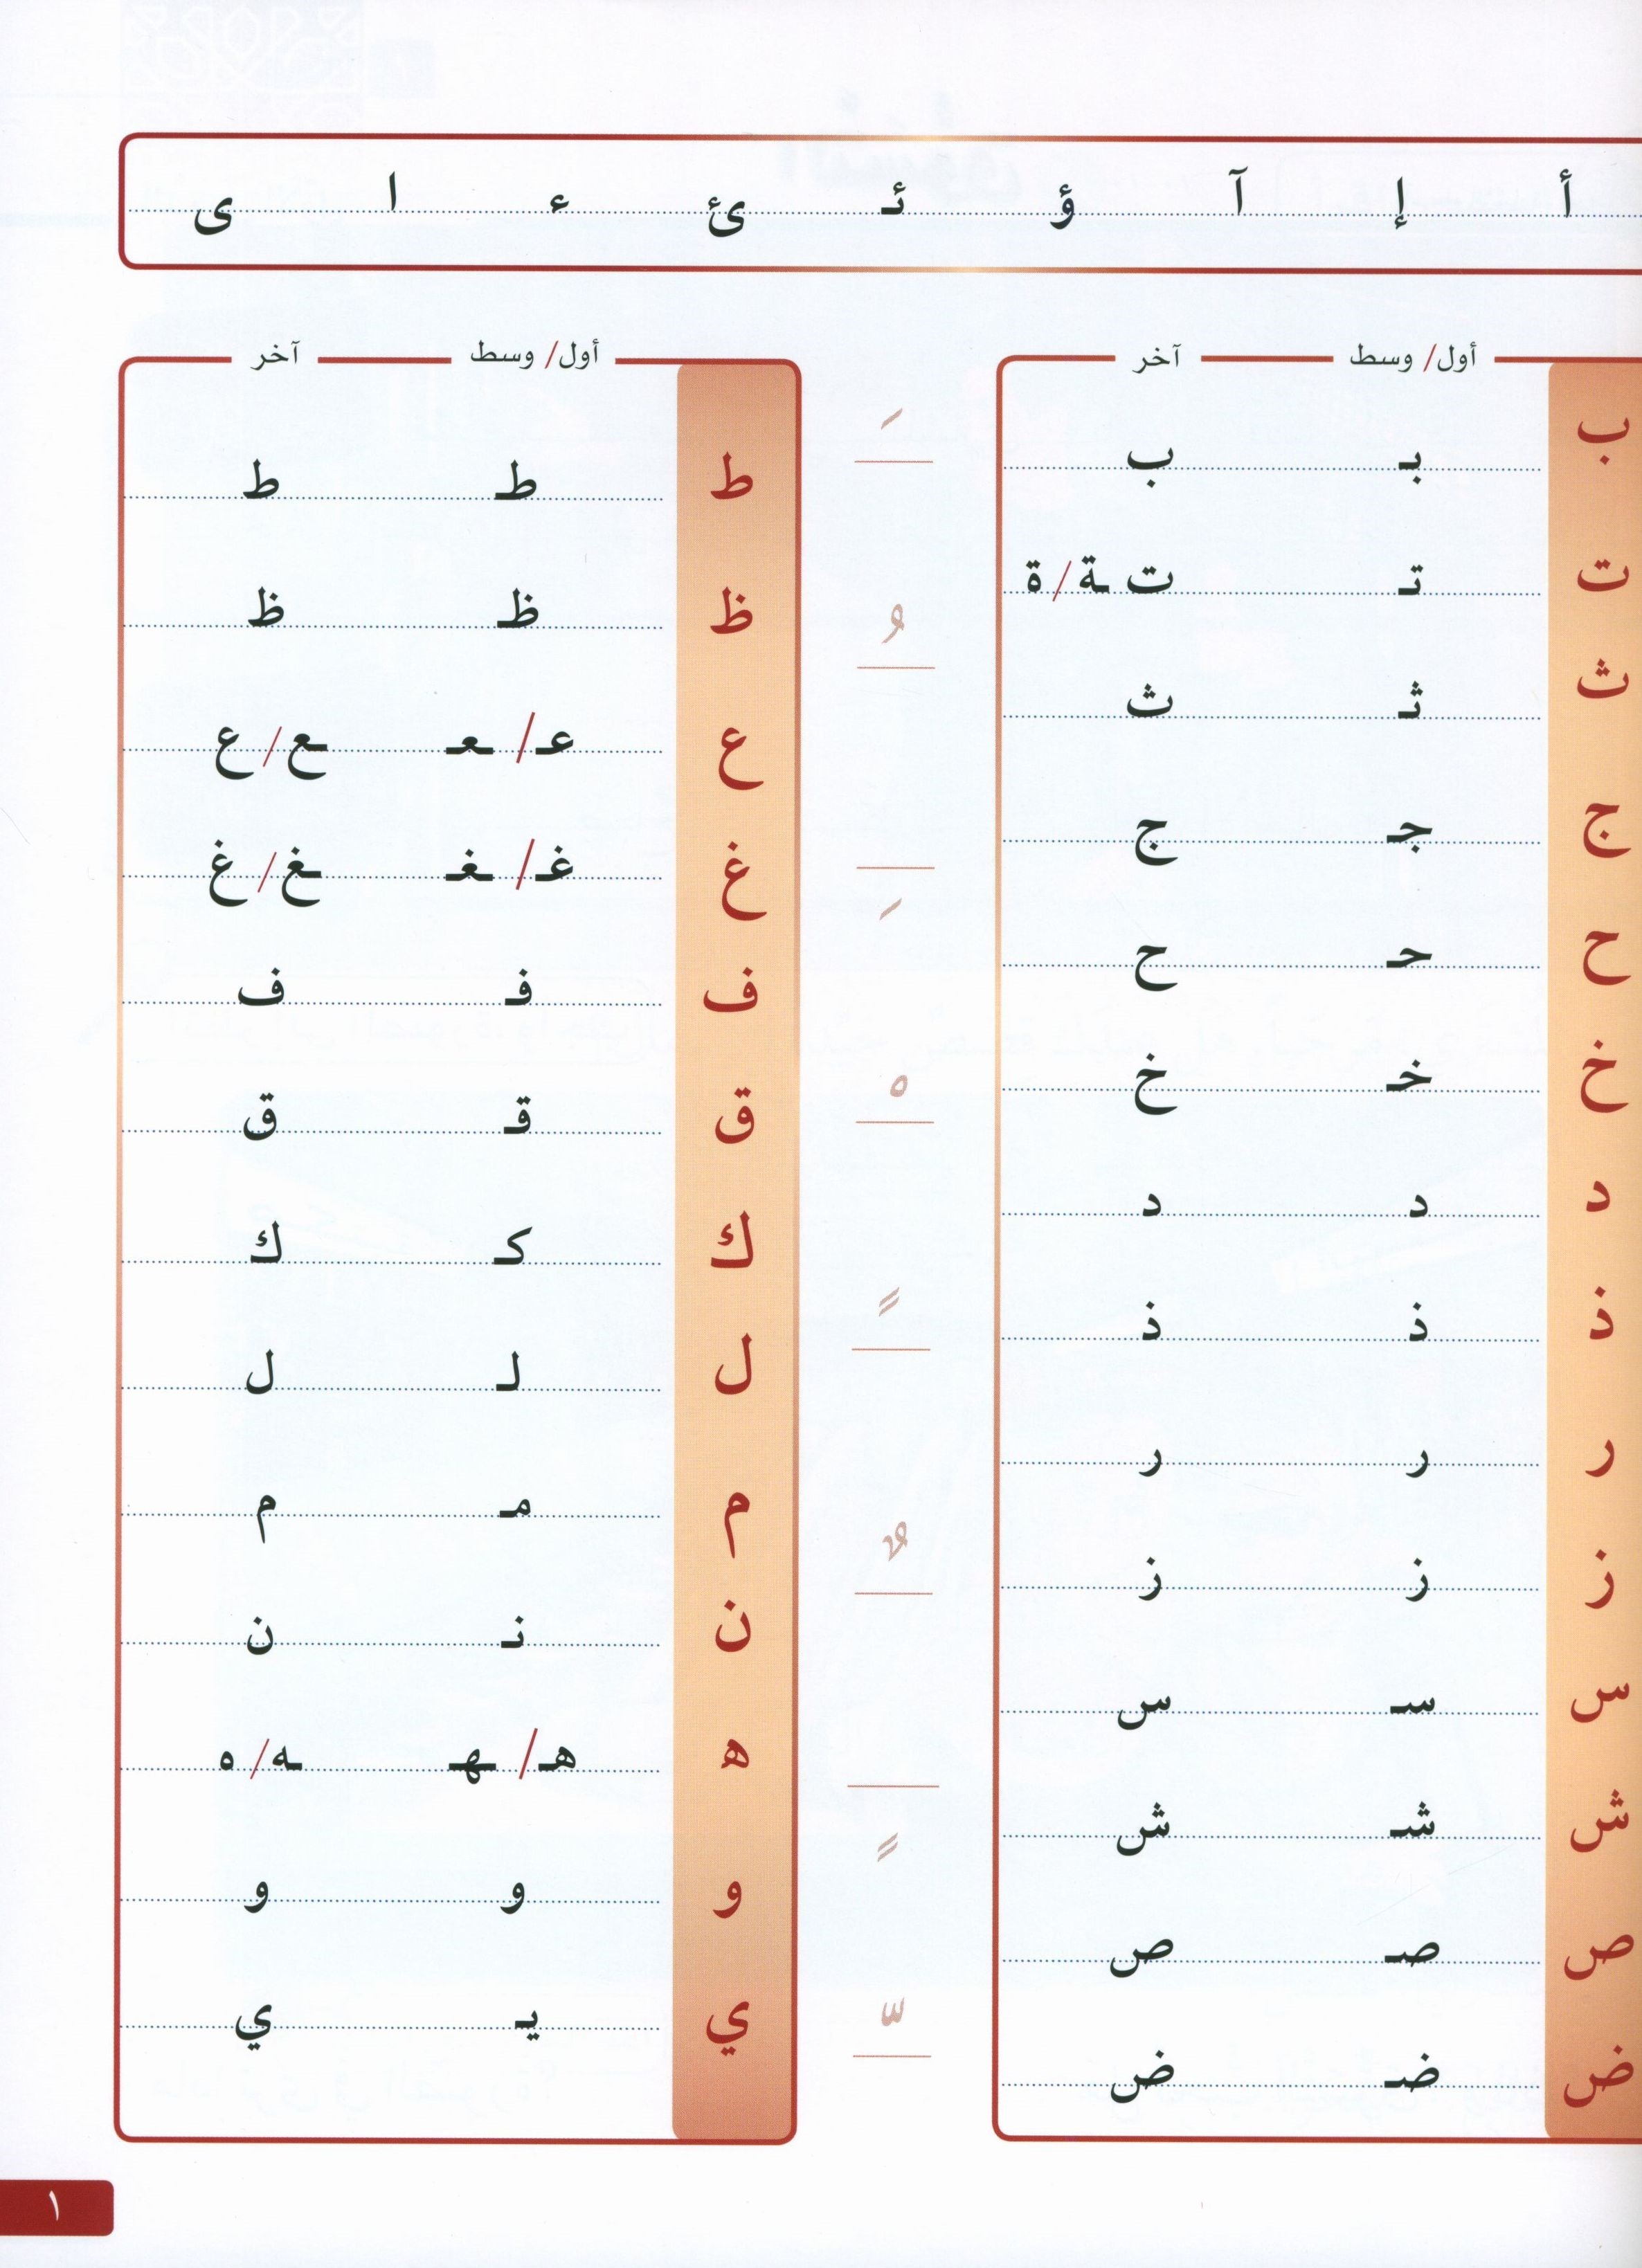 أ إ آ ؤ ئـ ئ ء ا ى
أول/ وسط آخر
ب بـ ب
ت تـ ت ـة/ة
ث ثـ ث
ج جـ ج
ح حـ ح
خ خـ خ
د د د
ذ ذ ذ
ر ر ر
ز ز ز
س سـ س
ش شـ ش
ص صـ ص
ض ضـ ض
َ
ُ
ِ
ْ
ً
ٌ
ٍ
ّ
أول/ وسط آخر
ط طـ ط
ظ ظـ ظ
ع عـ/ ـعـ ـع/ع
غ غـ/ ـغـ ـغ/غ
ف فـ ف
ق قـ ق
ك كـ ك
ل لـ ل
م مـ م
ن نـ ن
ه هـ/ ـهـ ـه/ه
و و و
ي يـ ي
١